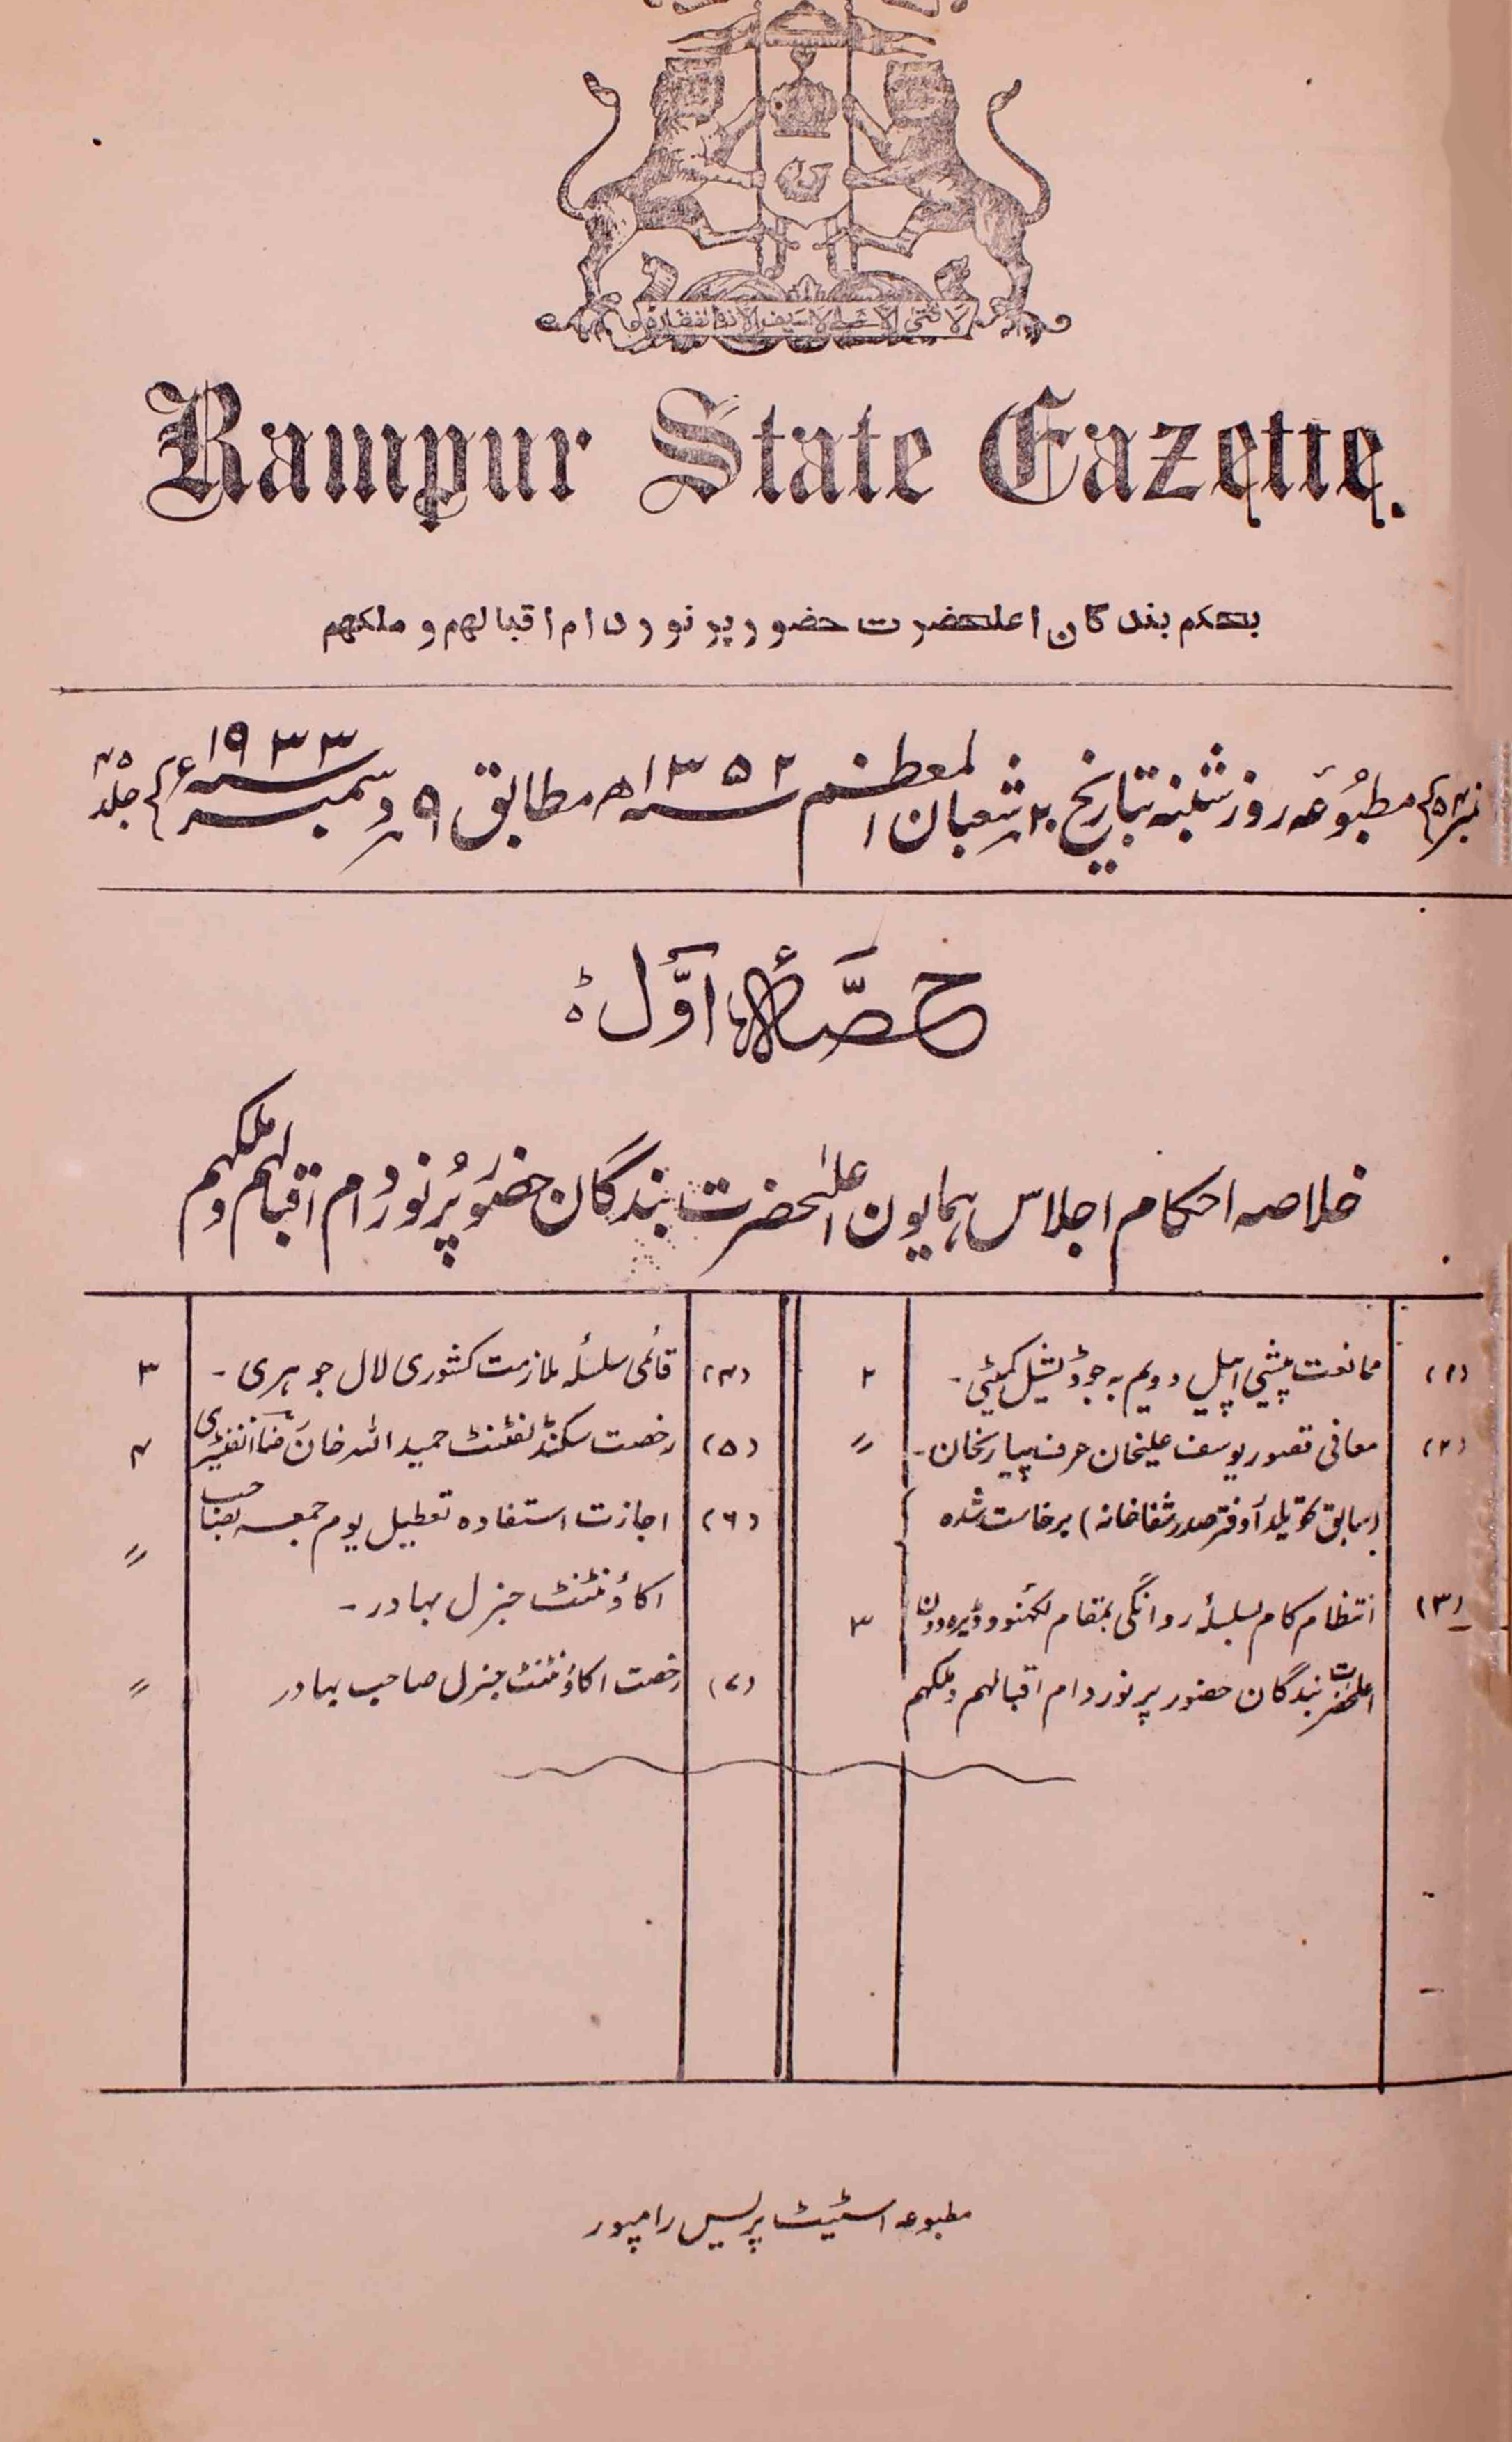 لا فتى الا علي لا سيف الا ذوالفقار
Rampur State Gazette.
بحکم بندگان اعلحضرت حضور پر نور دام اقبالهم و ملکهم
مطبُوعہ روز شنبہ بتاریخ ۲۰ شعبان المعظم سنہ ۱۳۵۲ھ مطابق ۹ دسمبر سنہ ۱۹۳۳ء جلد ۴۵
حصَّۂ اوَّل
خلاصہ احکام اجلاس ہمایون اعلیٰحضرت بندگان حضور پُرنور دام اقبالہم و ملکہم
(۱) ممانعت پیشی اپیل دویم بہ جوڈیشیل کمیٹی - ۲
(۲) معافی قصور یوسف علیخان عرف پیارےخان - 〃
(سابق تحویلدار دفتر صدر شفاخانہ) برخاست شدہ
(۳) انتظام کام بسلسلہ روانگی بمقام لکھنو و ڈیرہ دون ۳
اعلحضرت بندگان حضور پرنور دام اقبالہم و ملکہم
(۴) قائمی سلسلہ ملازمت کشوری لال جوہری - ۳
(۵) رخصت سکنڈ لفٹننٹ حمید اللہ خان صاحب انفنٹری ۴
(۶) اجازت استفادہ تعطیل یوم جمعہ بصاحب 〃
اکاؤنٹنٹ جنرل بہادر -
(۷) رخصت اکاؤنٹنٹ جنرل صاحب بہادر 〃
مطبوعہ اسٹیٹ پریس رامپور